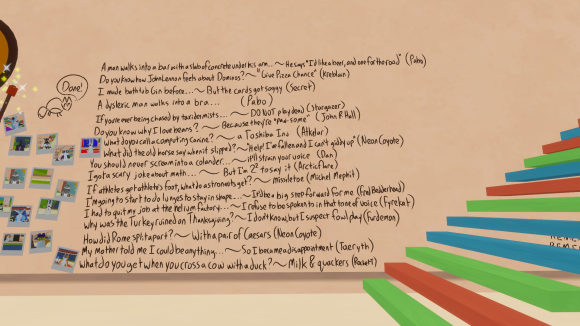 Done!
A man walks into a bar with a slab of concrete under his arm... ~ He says "I'd like a beer, and one for the road" (Pabo)
Do you know how John Lennon feels about Dominos? ~ "Give Pizza Chance" (Kreblain)
I made bathtub Gin before... ~ But the cards got soggy (Secret)
A dyslexic man walks into a bra... (Pabo)
If you're ever being chased by taxidermists... ~ DO NOT play dead (Stargazer)
Do you know why I love beans? ~ Because they're "some" (John R Hall)
What do you call a computing canine? ~ a Toshiba Inu (Alkelar)
What did the old horse say when it slipped? ~ Help! I'm fallen and I can't giddy up" (Neon Coyote)
You should never scream into a colander... ~ it'll strain your voice (Dan)
I got a scary joke about math... ~ But I'm 2² to say it (Arcticflare)
If athletes get athlete's foot, what do astronauts get? ~ missiletoe (Michel Mephit)
I'm going to start to do lunges to stay in shape... ~ It'd be a big step forward for me
I had to quit my job at the helium factory... ~ I refuse to be spoken to in that tone of voice (Fyrekat)
Why was the Turkey ruined on Thanksgiving? ~ I don't know, but I suspect foul play (Furdemon)
How did Rome split apart? ~ With a pair of Caesars (Neon Coyote)
My mother told me I could be anything... ~ So I became a disappointment (Taeryth)
What do you get when you cross a cow with a duck? ~ Milk & quackers